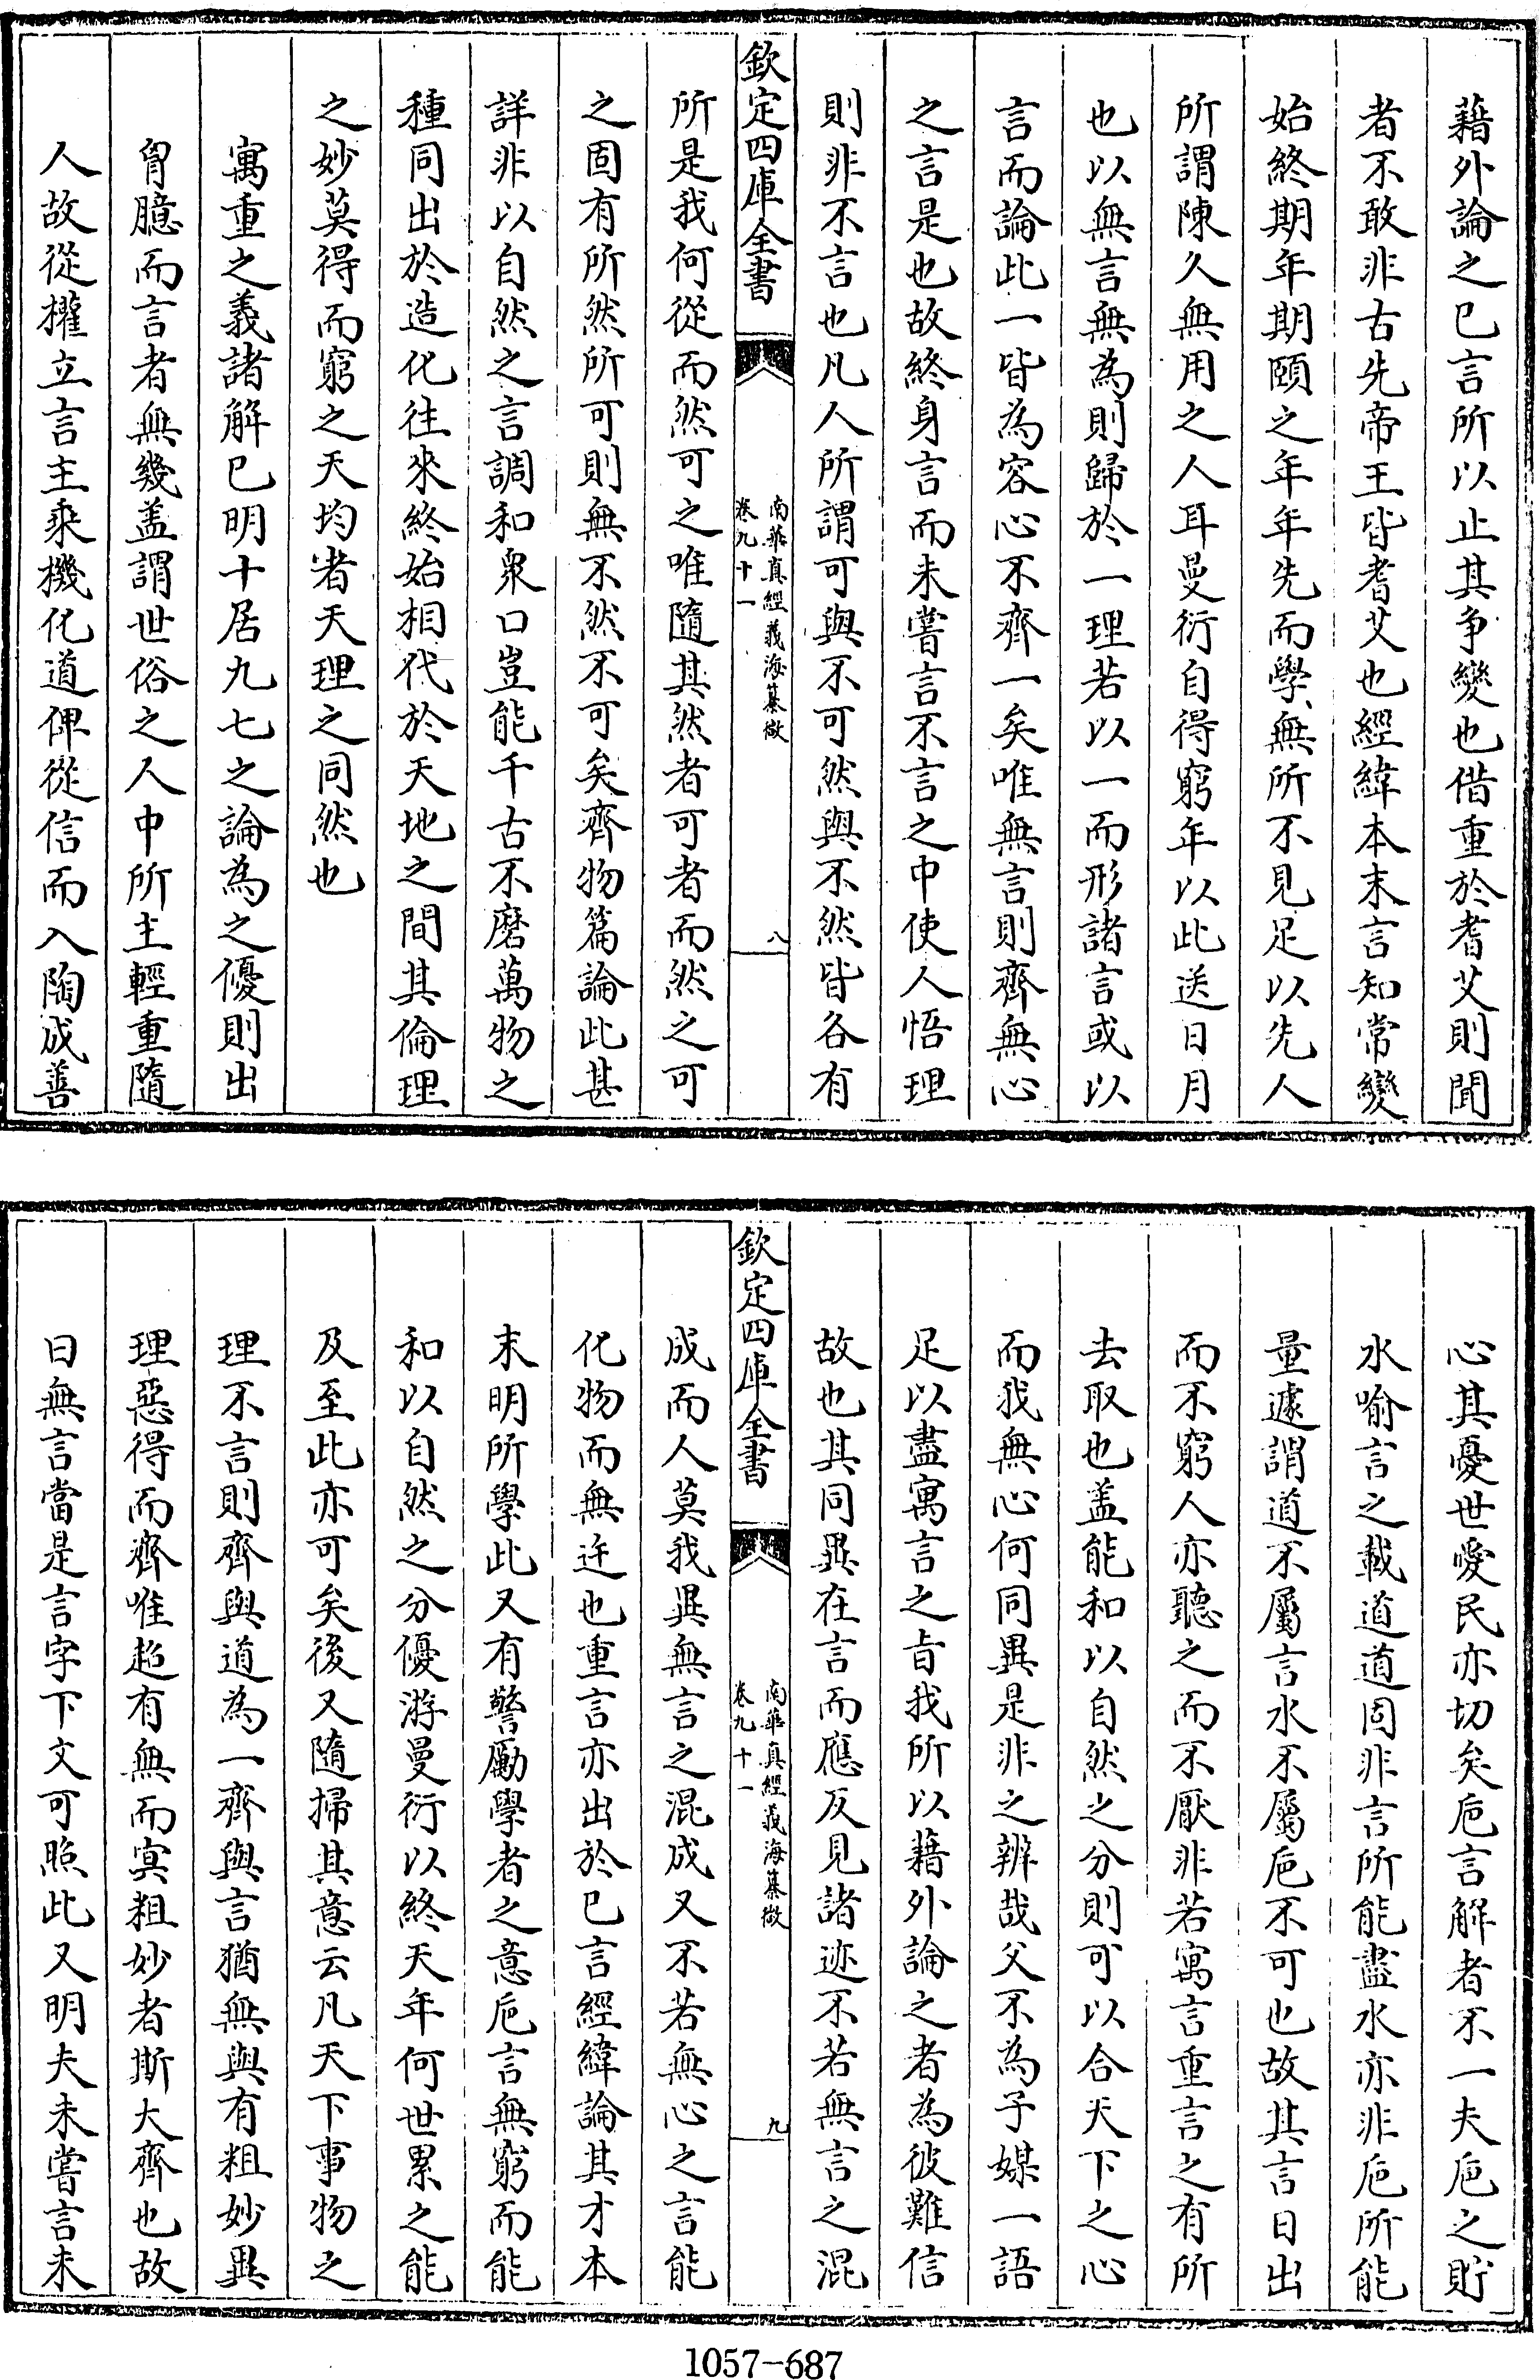 藉外論之已言所以止其争變也借重於耆艾則聞
者不敢非古先帝王皆耆艾也經緯本末言知常變
始終期年期頤之年年先而學無所不見足以先人
所謂陳久無用之人耳曼衍自得窮年以此送日月
也以無言無為則歸於一理若以一而形諸言或以
言而論此一皆為容心不齊一矣唯無言則齊無心
之言是也故終身言而未嘗言不言之中使人悟理
則非不言也凡人所謂可與不可然與不然皆各有
欽定四庫全書
南華真經義海纂微
卷九十一
八
所是我何從而然可之唯隨其然者可者而然之可
之固有所然所可則無不然不可矣齊物篇論此甚
詳非以自然之言調和衆口豈能千古不磨萬物之
種同出於造化往來終始相代於天地之間其倫理
之妙莫得而窮之天均者天理之同然也
寓重之義諸解已明十居九七之論為之優則出
胷臆而言者無幾盖謂世俗之人中所主輕重隨
人故從權立言主乘機化道俾從信而入陶成善
心其憂世愛民亦切矣巵言解者不一夫巵之貯
水喻言之載道道固非言所能盡水亦非巵所能
量遽謂道不屬言水不屬巵不可也故其言日出
而不窮人亦聽之而不厭非若寓言重言之有所
去取也盖能和以自然之分則可以合天下之心
而我無心何同異是非之辨哉父不為子媒一語
足以盡寓言之旨我所以藉外論之者為彼難信
故也其同異在言而應反見諸迹不若無言之混
欽定四庫全書
南華真經義海纂微
卷九十一
九
成而人莫我異無言之混成又不若無心之言能
化物而無迕也重言亦出於已言經緯論其才本
末明所學此又有警勵學者之意巵言無窮而能
和以自然之分優游曼衍以終天年何世累之能
及至此亦可矣後又隨掃其意云凡天下事物之
理不言則齊與道為一齊與言猶無與有粗妙異
理惡得而齊唯超有無而㝠粗妙者斯大齊也故
曰無言當是言字下文可照此又明夫未嘗言未
1057-687